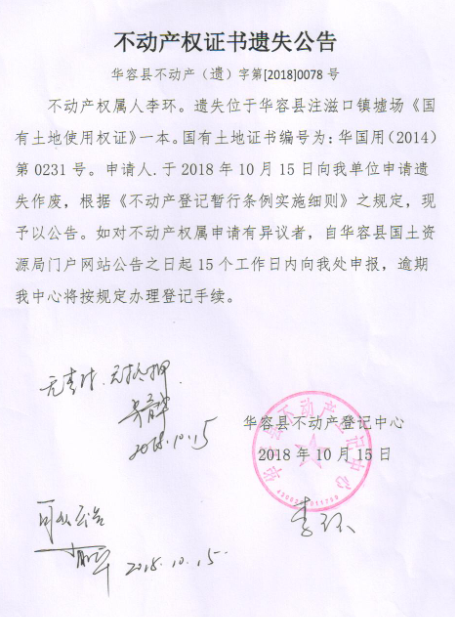 不动产权证书遗失公告
华容县不动产（遗）字第[2018]0078 号
不动产权属人李环。遗失位于华容县注滋口镇墟场《国
有土地使用权证》一本。国有土地证书编号为：华国用（2014）
第 0231 号。申请人.于 2018 年 10 月 15 日向我单位申请遗
失作废，根据《不动产登记暂行条例实施细则》之规定，现
予以公告。如对不动产权属申请有异议者，自华容县国土资
源局门户网站公告之日起 15 个工作日内向我处申报，逾期
我中心将按规定办理登记手续。
无查封.无抵押.
2018.10.15
华容县不动产登记中心
2018 年 10 月 15 日
李环
可以公告
2018.10.15.